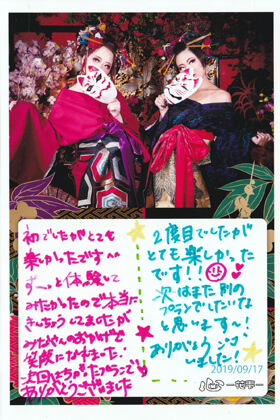 初でしたがとても
楽しかったです〜
ず〜っと体験して
みたかったので本当に
きんちょうしてましたが
みなさんのおかげで
笑顔になれました!
次回はちがったプランでも
ありがとうございました
2度目でしたが
とても楽しかった
です!!
次はまた別の
プランでしたいなと
思います〜!
ありがとうござ
いました!
2019/09/17